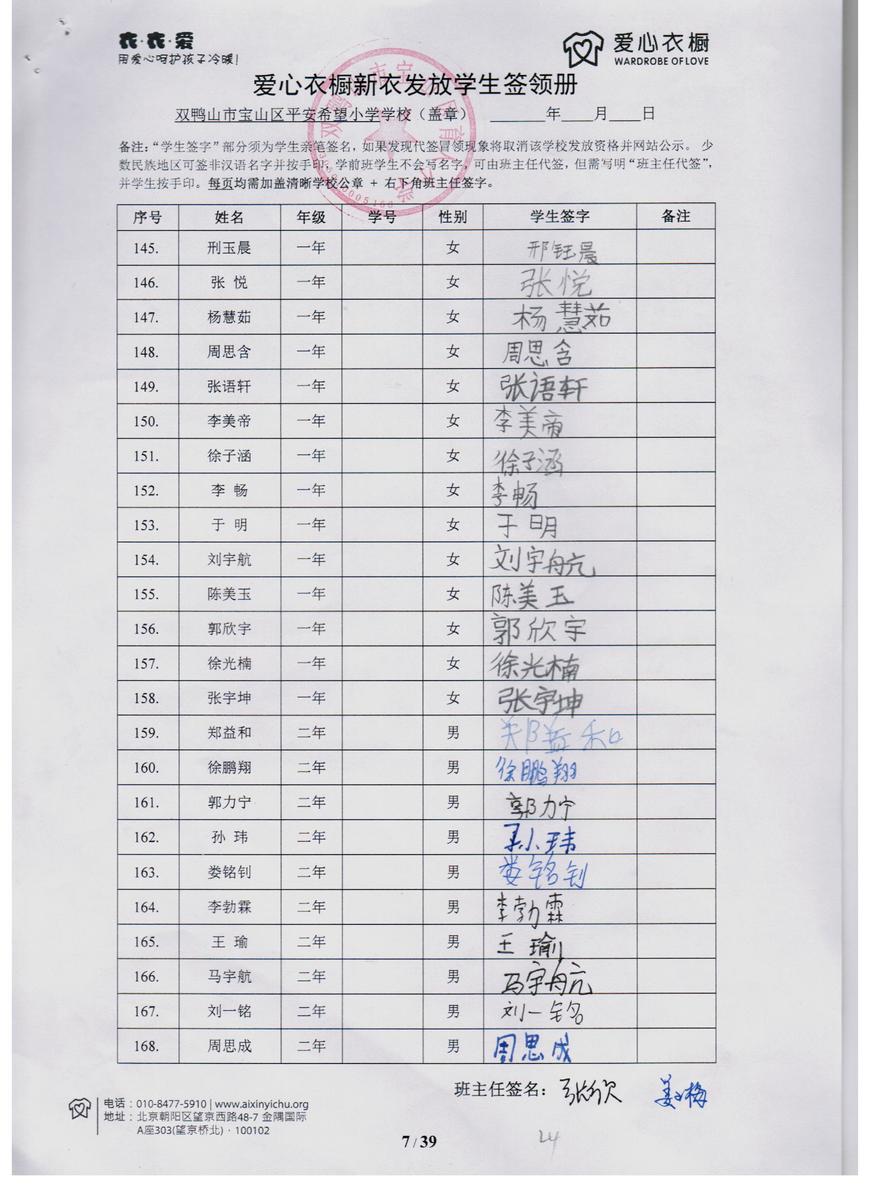 衣·衣·爱
用爱心呵护孩子冷暖!
爱心衣橱
WARDROBE OF LOVE
爱心衣橱新衣发放学生签领册
双鸭山市宝山区平安希望小学学校（盖章） ____年____月____日
备注："学生签字"部分须为学生亲笔签名，如果发现代签冒领现象将取消该学校发放资格并网站公示。 少
数民族地区可签非汉语名字并按手印；学前班学生不会写名字，可由班主任代签，但需写明"班主任代签"，
并学生按手印。每页均需加盖清晰学校公章 + 右下角班主任签字。
序号 姓名 年级 学号 性别 学生签字 备注
145. 刑玉晨 一年 女 邢钰晨
146. 张 悦 一年 女 张悦
147. 杨慧茹 一年 女 杨慧茹
148. 周思含 一年 女 周思含
149. 张语轩 一年 女 张语轩
150. 李美帝 一年 女 李美帝
151. 徐子涵 一年 女 徐子涵
152. 李 畅 一年 女 李畅
153. 于 明 一年 女 于明
154. 刘宇航 一年 女 刘宇航
155. 陈美玉 一年 女 陈美玉
156. 郭欣宇 一年 女 郭欣宇
157. 徐光楠 一年 女 徐光楠
158. 张宇坤 一年 女 张宇坤
159. 郑益和 二年 男 郑益和
160. 徐鹏翔 二年 男 徐鹏翔
161. 郭力宁 二年 男 郭力宁
162. 孙 玮 二年 男 孙玮
163. 娄铭钊 二年 男 娄铭钊
164. 李勃霖 二年 男 李勃霖
165. 王 瑜 二年 男 王瑜
166. 马宇航 二年 男 马宇航
167. 刘一铭 二年 男 刘一铭
168. 周思成 二年 男 周思成
班主任签名: 张欣 姜梅
电话：010-8477-5910 | www.aixinyichu.org
地址：北京朝阳区望京西路48-7 金隅国际
A座303(望京桥北)·100102
7 / 39
24